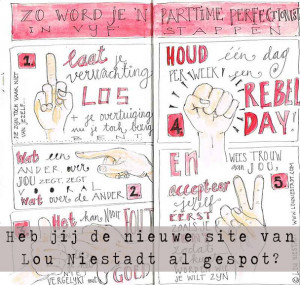 ZO WORD JE 'N PARTTIME PERFECTIONIST
IN VIJF STAPPEN
1.
laat je
verwachting
LOS
+ je overtuiging
nu je toch bezig
BENT
Wat een
ANDER over
JOU ZEGT, ZEGT
VOORAL
wat over de ANDER
2.
Het kan NOOIT FOUT
VERGELIJKT met
HOUD één dag
PER WEEK een
REBEL
DAY!
4.
EN
WEES TROUW
aan JOU,
accepteer
jezelf
EERST
5.
JE WILT ZIJN
Heb jij de nieuwe site van
Lou Niestadt al gespot?